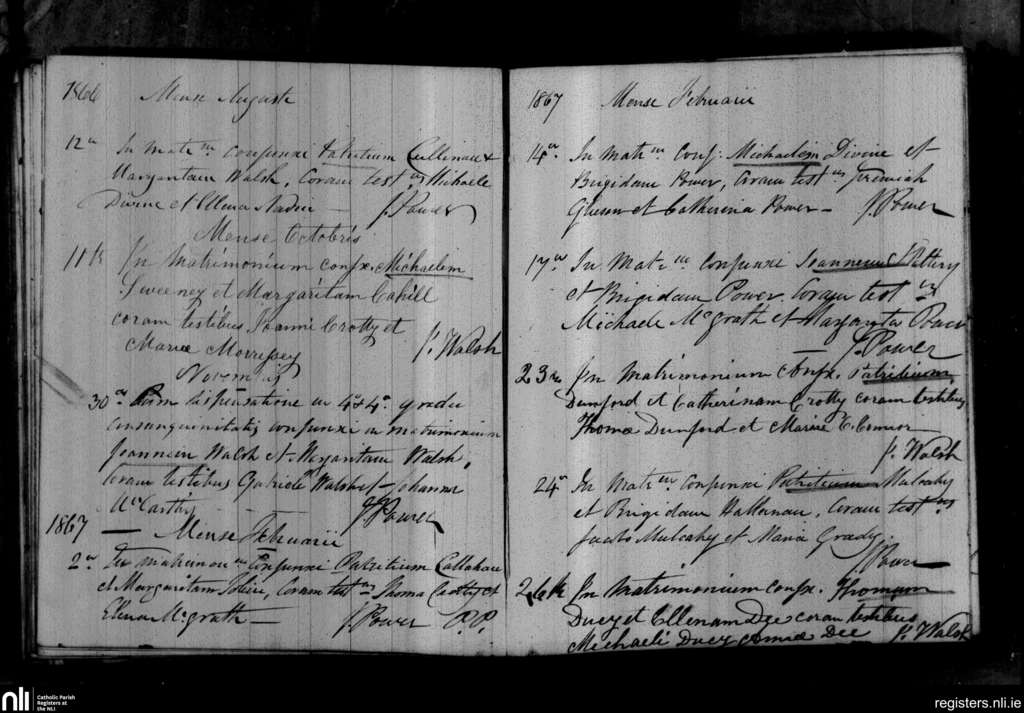 1866 Mense Augusti
12a In Matrm Conjunxi Patritium Cullinan &
Margaritam Walsh, Coram testus Michaele
Divine et Ellena Nadin — J. Power
Mense Octobris
11th In Matrimonium conjx. Michaelem
Sweeney et Margaritam Cahill
coram testibus Joanni Crotty et
Mariæ Morrissey J. Walsh
Novembris
30a Cum dispensatione in 4o & 4o gradu
Consanguinitatis conjunxi in matrimonium
Joannem Walsh et Margaritam Walsh,
Coram testibus Gabriele Walsh et Johanna
McCarthy J. Power
1867 — Mense Februarii
2a In matrimonm Conjunxi Patritium Callahan
et Margaritam, Coram testus Thoma Crotty et
Elena McGrath — J. Power P.P.
1867 Mense Februarii
14a. In Matrm Conj: Michaelem Divine et
Brigidam Power, Coram testus Jeremiah
Gleeson et Catherina Power — J. Power
17a In Matrm Conjunxi Joannem Slattery
et Brigidam Power. Coram testus
Michaele McGrath et Margarita Power
J. Power
23a In Matrimonium Conjx. Patritium
Dunford et Catherinam Crotty coram testibus
Thomæ Dunford et Mariæ O'Connor
J. Walsh
24a In Matrm Conjunxi Patritium Mulcahy
et Brigidam Hallanan, Coram testus
Jacobo Mulcahy et Maria Grady.
J. Power
26th In Matrimonium conjx. Thomam
Ducy et Ellenam Dee coram testibus
Michaeli Ducy Annæ Dee J. Walsh
nli Catholic Parish
Registers at
the NLI
registers.nli.ie